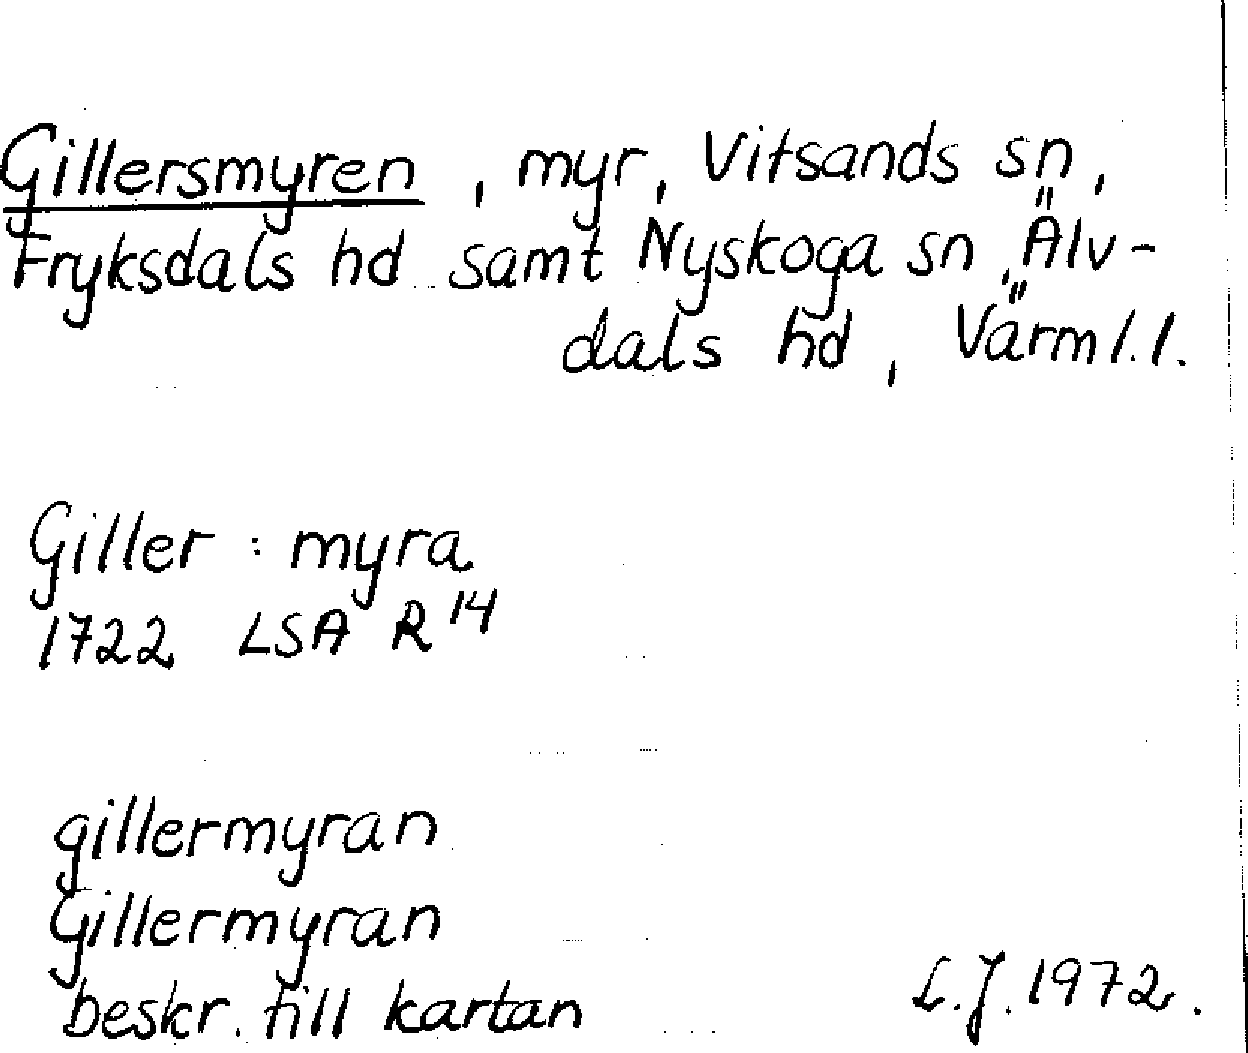 Gillersmyren, myr, Vitsands sn,
Fryksdals hd samt Nyskoga sn, Älv-
dals hd, Värml.l.
Giller : myra
1722 LSA R 14
gillermyran
Gillermyran
beskr. till kartan
L.J. 1972.